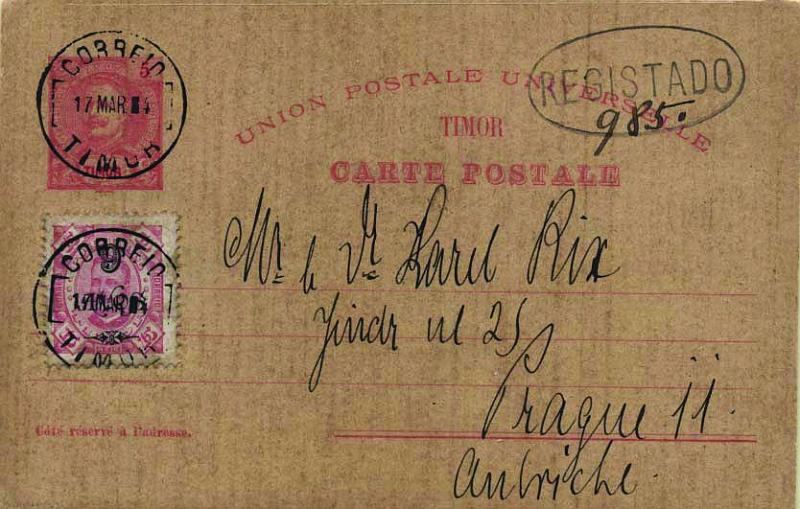 CORREIO
17 MAR 04
TIMOR
REGISTADO
985.
UNION POSTALE UNIVERSELLE
TIMOR
CARTE POSTALE
CORREIO
17 MAR 04
TIMOR
Mr le Dr Karel Rix
Jindr ul 25
Prague II.
Autriche.
Côté réservé à l'adresse.